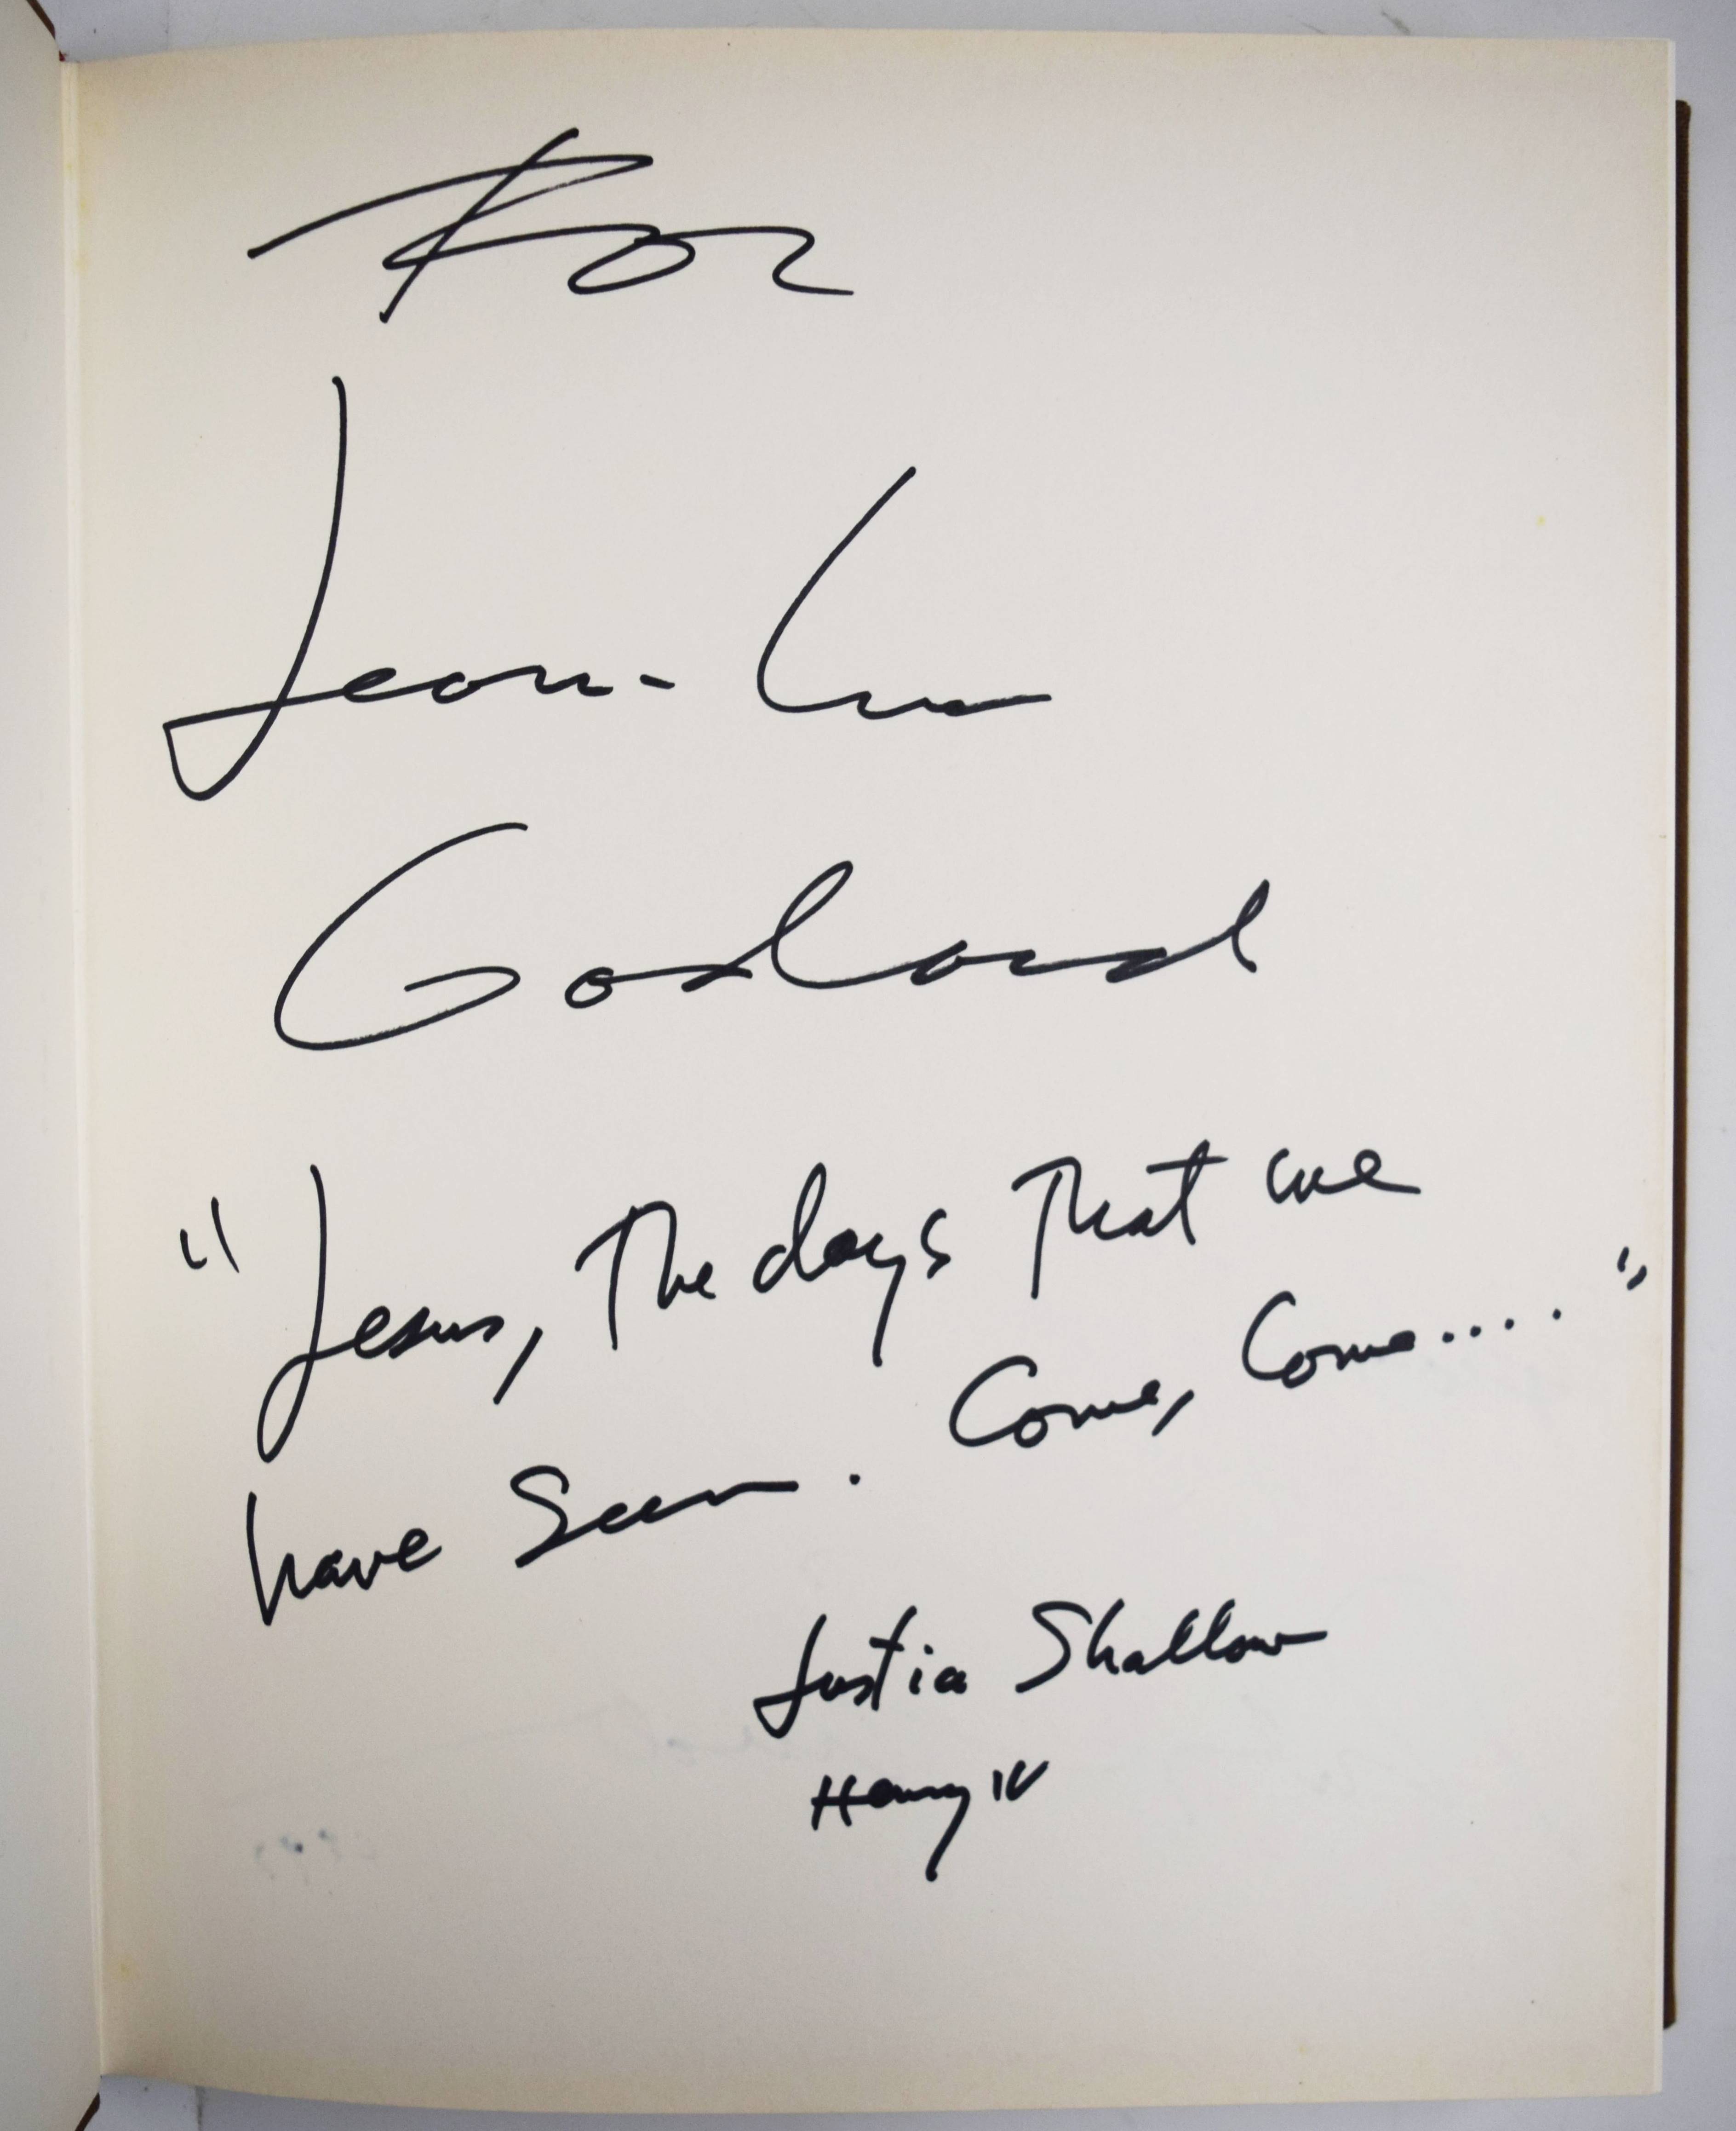 For
Jean-Luc
Godard
"Jesus, The days That we
have Seen. Come, Come...."
Justice Shallow
Henry IV